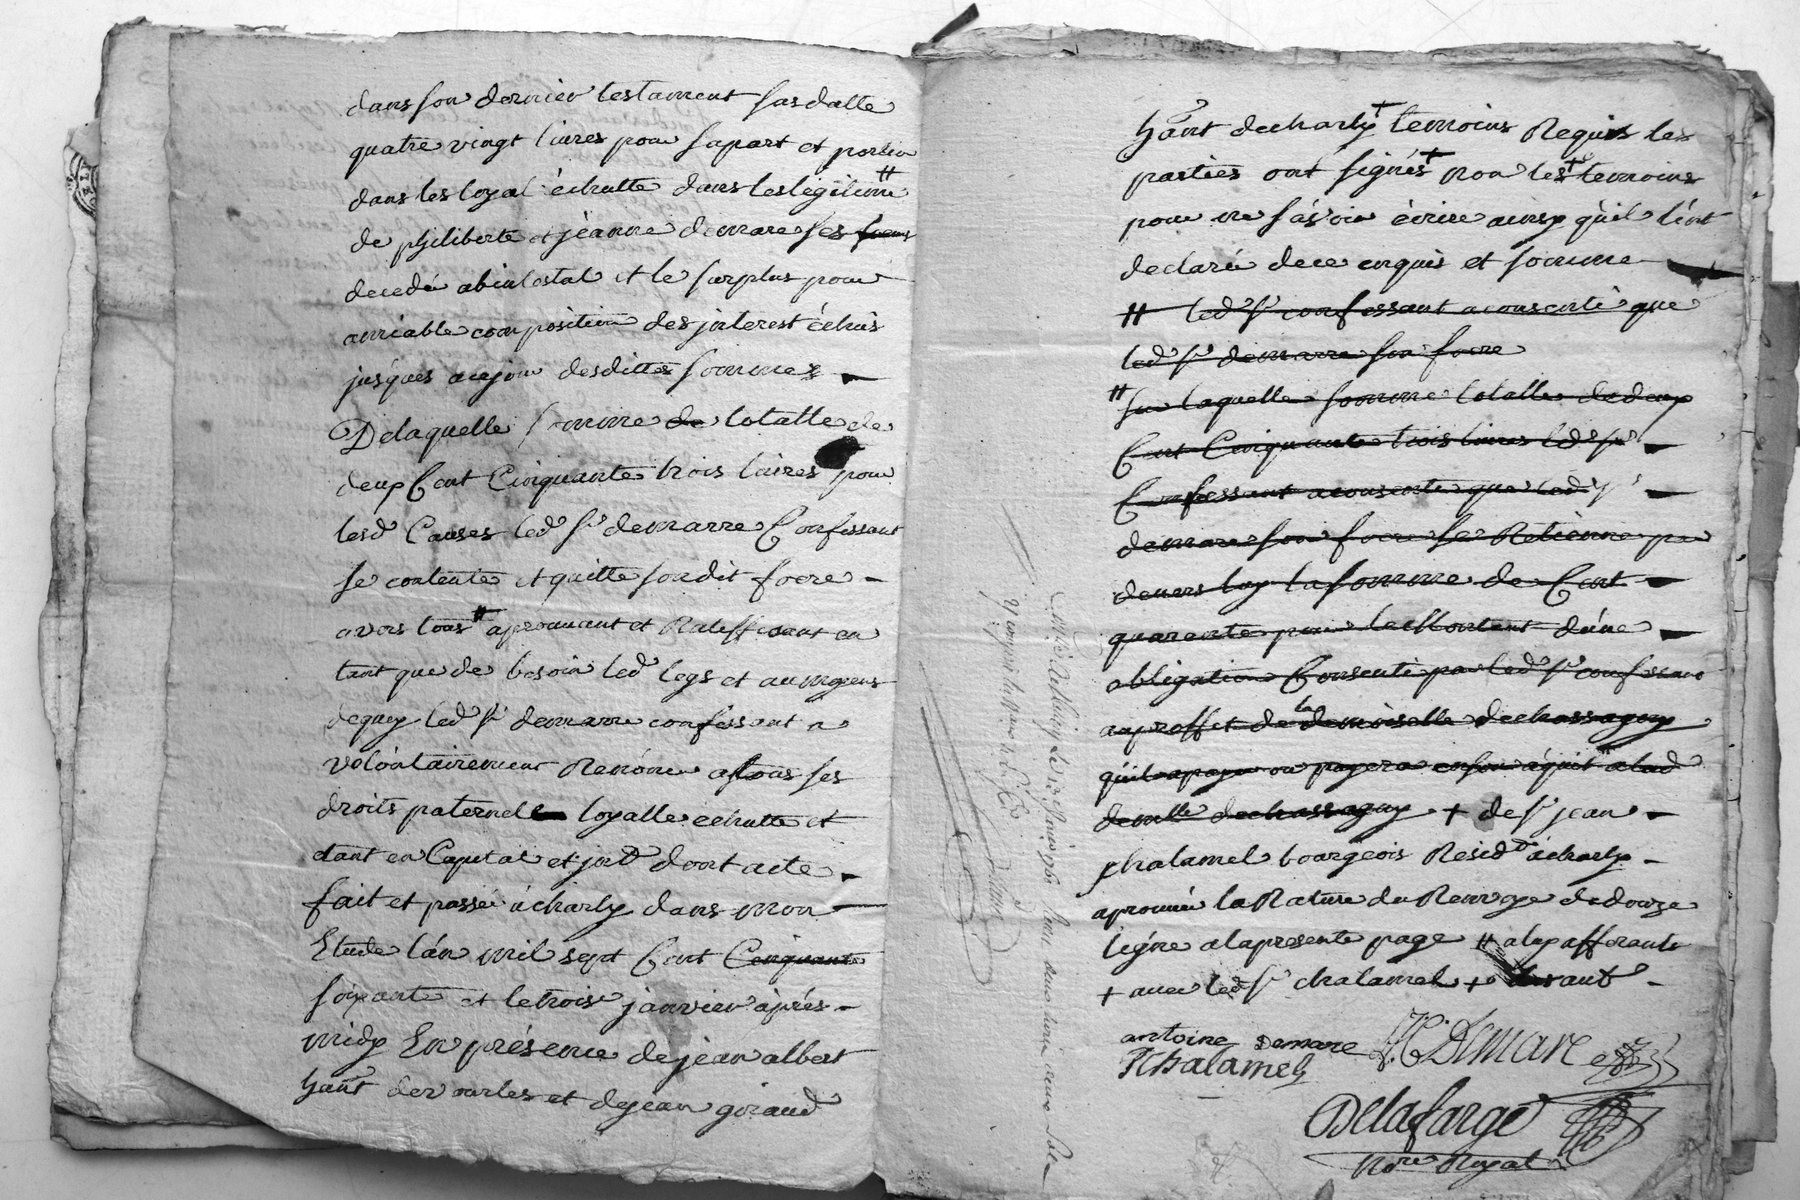 dans son dernier testament sas datte
quatre vingt livres pour sa part et portion
dans les loyal échutte dans les legitime #
de philiberte et jèanne demare ses freres
decedé abintestat et le surplus pour
amiable composition des jnterest échus
jusques aujour desdittes sommes
De laquelle somme de totalle de
deux Cent Cinquante trois livres pour
lesd Causes led sr demarre Confessant
se contente et quitte sondit frere
avec tous # aprouvant et Ratiffiant en
tant que de besoin led legs et aumoyens
dequoy led sr demarre confessant a
volontairement Renoncé a tous ses
droits paternels loyalle echutte et
tant en Capital et jnt dont acte
fait et passé a charly dans mon
Etude l'an mil sept Cent Cinquante
soixante et le trois janvier après
midy En présence de jean albert
hant de vourles et de jean giraud
hant de charly + temoins Requis les
parties ont signés + non les + temoins
pour ne sávoir écrire ainsy qu'il l'ont
declaré de ce enquis et somme
# led sr confessant a consenti que
led sr demarre son frere
# sur laquelle somme totalle de deux
Cent Cinquante trois livres led sr
Confessant a consenti que led sr
demare son frere se Retienne par
devers luy la somme de Cent
quarente pour le Montant d'une
obligation Consenti par led sr confessant
au proffit de la demoiselle de chassagny
qu'il a paye ou payera en son aquit a lad
demlle de chassagny + de sr jean
chalamel bourgeois Resid a charly
aprouvé la Rature du Renvoye de douze
ligne a la presente page # a luy afferante
+ avec led sr chalamel +
antoine Demare JC Demare
J Chalamel
Delafarge
Nore Royal